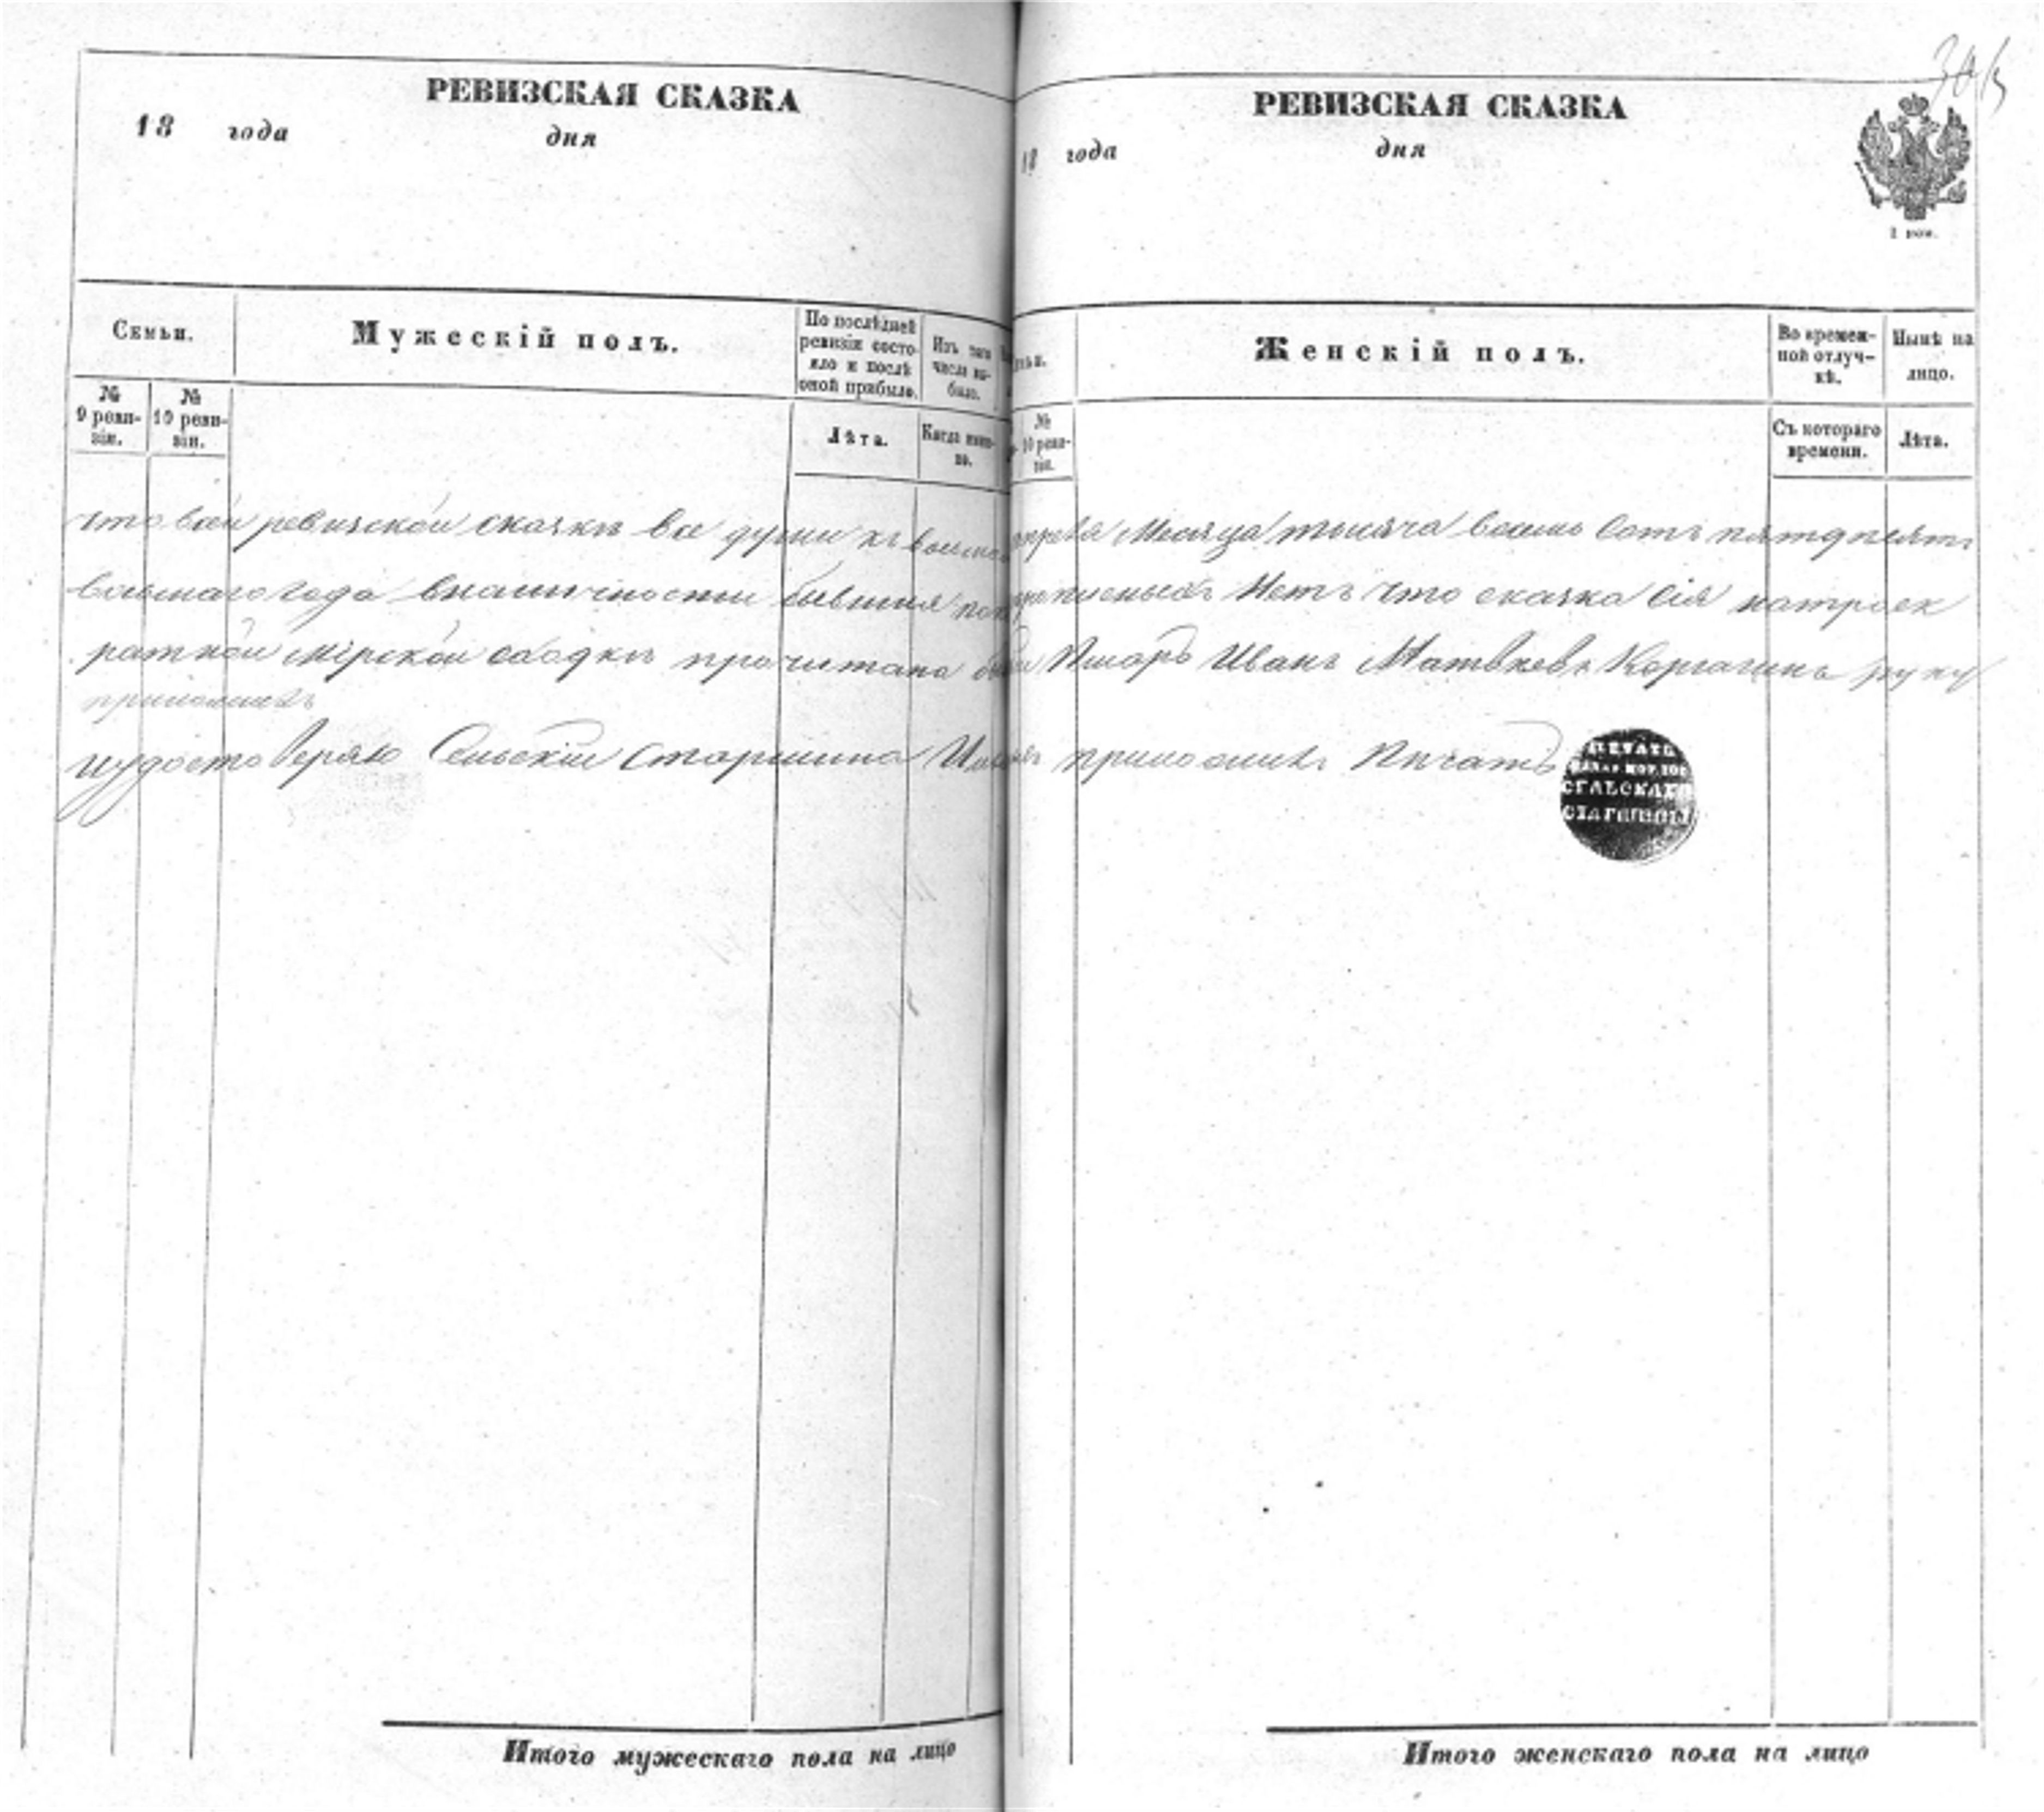 РЕВИЗСКАЯ СКАЗКА
18 года дня
Семьи.
Мужескій полъ.
По послѣдней ревизіи состояло и послѣ оной прибыло.
Изъ того числа выбыло.
№ 9 ревизіи.
№ 10 ревизіи.
Лѣта.
Когда именно.
РЕВИЗСКАЯ СКАЗКА
18 года дня
Женскій полъ.
Во временной отлучкѣ.
Нынѣ на лицо.
№ 10 ревизіи.
Съ котораго времени.
Лѣта.
что всей ревизской сказки все души къ апреля Месяца тысяча восемь сотъ пятдесятъ
восьмаго года вналичности бывшия Нетъ что сказка сія натроек
ратной мірской сходки прочитана была Писарь Иванъ Матвѣевъ Корчагинъ руку
приложилъ
иудостоверяю Сельскій Старшина приложилъ Печать
ПЕЧАТЬ
СЕЛЬСКАГО
СТАРШИНЫ
Итого мужескаго пола на лицо
Итого женскаго пола на лицо